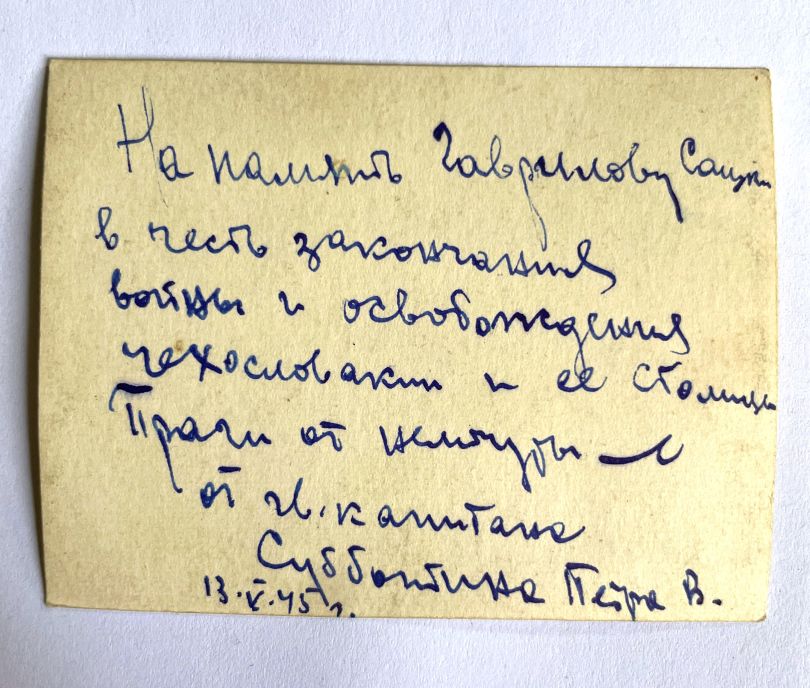 На память Гаврилову Сашки
в честь закончания
войны и освобождения
чехословакии и ее столицы
Праги от немчуры —
от гв. капитана
Субботина Петра В.
13.V.45 г.